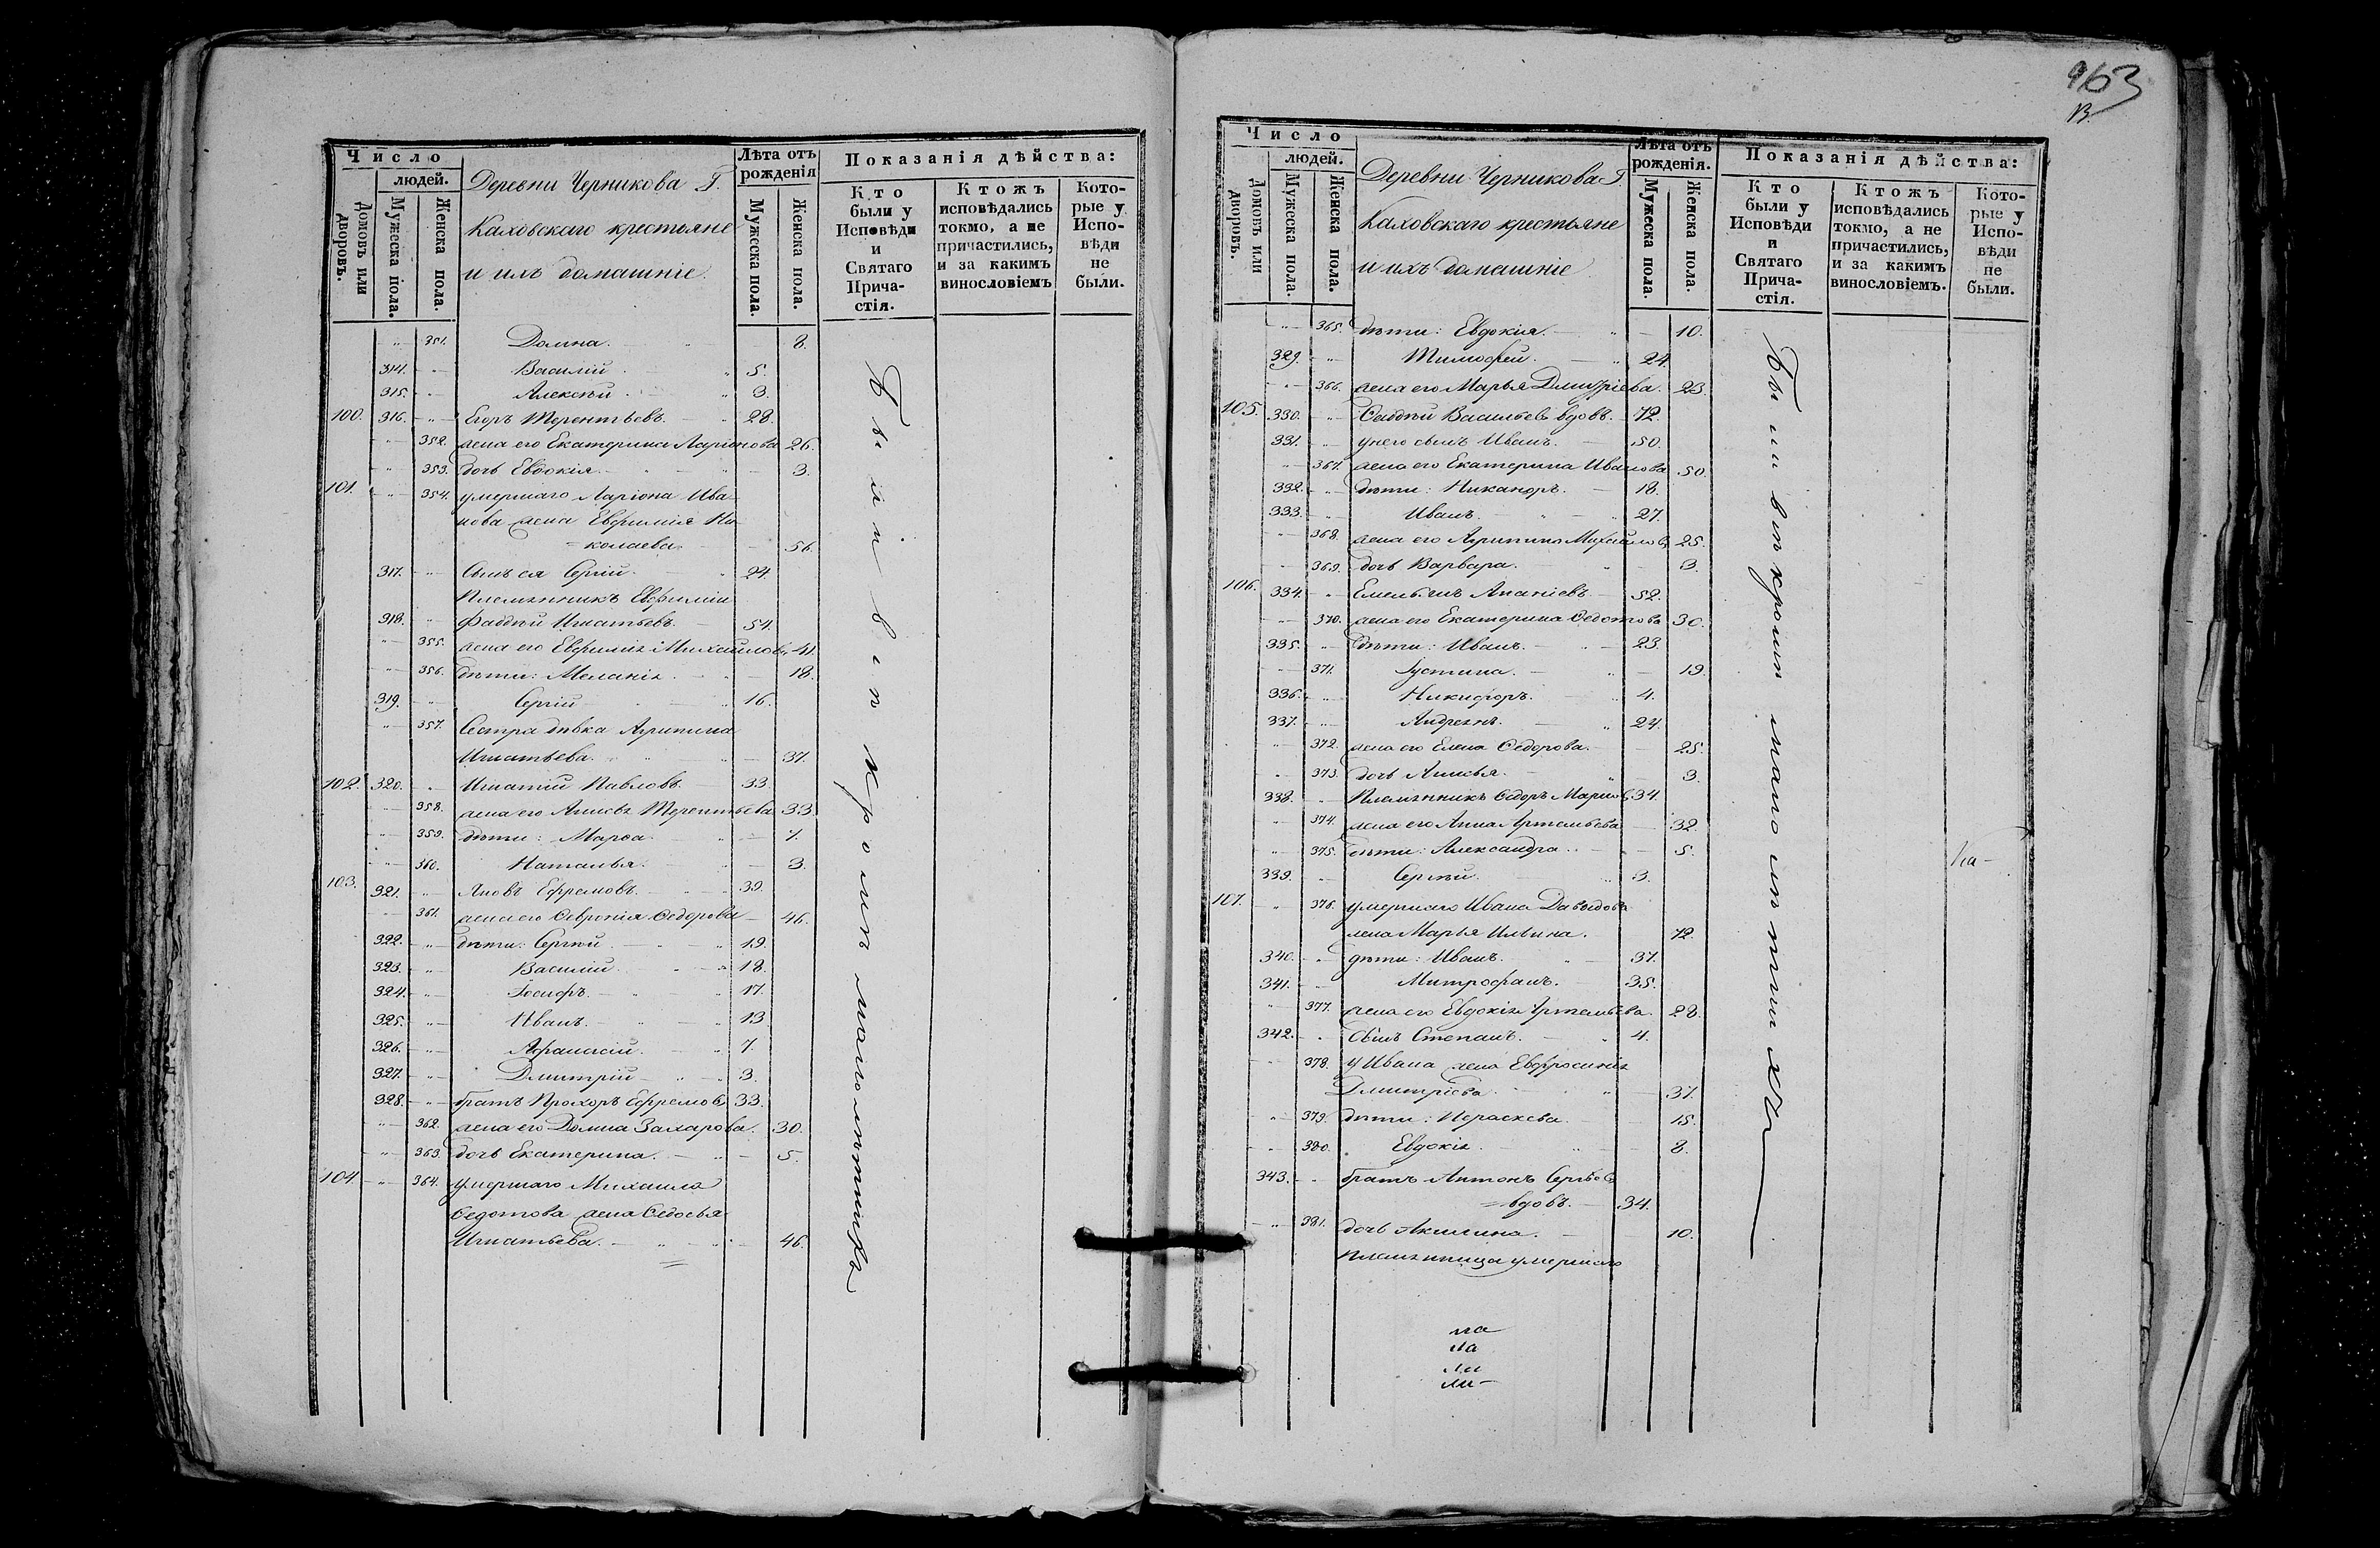 963
13
Число
людей.
Домовъ или дворовъ.
Мужеска пола.
Женска пола.
Деревни Черникова Г.
Каховскаго крестьяне
и ихъ домашніе
Лѣта отъ рожденія
Мужеска пола.
Женска пола.
Показанія дѣйства:
Кто были у Исповѣди и Святаго Прича-стія.
Ктожъ исповѣдались токмо, а не причастились, и за какимъ винословіемъ
Кото-рые у Испо-вѣди не были.
351. Домна. 8.
314. Василій 5.
315. Алексѣй 3.
100. 316. Егоръ Терентьевъ. 28.
352. жена его Екатерина Ларіонова 26.
353. дочь Евдокія 3.
101. 354. умершаго Ларіона Ива-
нова жена Евфимія Ни-
колаева 56.
317. Сынъ ея Сергій 24.
Племянникъ Евфиміи
318. Фаддѣй Игнатьевъ 54.
355. жена его Евфимія Михайлов. 41.
356. дѣти: Меланія 18.
319. Сергій 16.
357. Сестра дѣвка Агрипина
Игнатьева. 37.
102. 320. Игнатій Павловъ 33.
358. жена его Анисья Терентьева 33.
359. дѣти: Марѳа 7.
360. Наталья. 3.
103. 321. Яковъ Ефремовъ 39.
361. жена его Февронія Ѳедорова 46.
322. дѣти: Сергѣй 19.
323. Василій 18.
324. Іосифъ. 17.
325. Иванъ. 13
326. Афанасій. 7.
327. Дмитрій 3.
328. братъ Прохоръ Ефремовъ 33.
362. жена его Домна Захарова. 30.
363. дочь Екатерина. 5.
104. 364. умершаго Михаила
Ѳедотова жена Ѳедосья
Игнатьева. 46.
Были вси кромѣ малолѣтнихъ
Число
людей.
Домовъ или дворовъ.
Мужеска пола.
Женска пола.
Деревни Черникова Г.
Каховскаго крестьяне
и ихъ домашніе
Лѣта отъ рожденія.
Мужеска пола.
Женска пола.
Показанія дѣйства:
Кто были у Исповѣди и Святаго Прича-стія.
Ктожъ исповѣдались токмо, а не причастились, и за какимъ винословіемъ.
Кото-рые у Испо-вѣди не были.
365. дѣти: Евдокія. 10.
329. Тимофей. 24.
366. жена его Марья Дмитріева. 23.
105. 330. Фаддѣй Васильевъ вдовъ. 72.
331. у него сынъ Иванъ. 50.
367. жена его Екатерина Иванова 50.
332. дѣти: Никаноръ. 18.
333. Иванъ. 27.
368. жена его Агрипина Михайлов. 25.
369. дочь Варвара. 3.
106. 334. Емельянъ Ананіевъ 52.
370. жена его Екатерина Ѳедотова 30.
335. дѣти: Иванъ. 23.
371. Іустина. 19.
336. Никифоръ. 4.
337. Андреянъ. 24.
372. жена его Елена Ѳедорова. 25.
373. дочь Анисья. 3.
338. Племянникъ Ѳедоръ Марков. 34.
374. жена его Анна Артемьева 32.
375. дѣти: Александра 5.
339. Сергѣй 3.
107. 376. умершаго Ивана Давыдова
жена Марья Ильина. 72.
340. дѣти: Иванъ. 37.
341. Митрофанъ. 35.
377. жена его Евдокія Артемьева. 28.
342. Сынъ Степанъ. 4.
378. у Ивана жена Евфросинія
Дмитріева 37.
379. дѣти: Параскева. 15.
380. Евдокія 8.
343. братъ Антонъ Сергѣев.
вдовъ. 34.
381. дочь Акилина. 10.
племянница умершаго
Были вси кромѣ малолѣтнихъ
на
ла
ли
ли